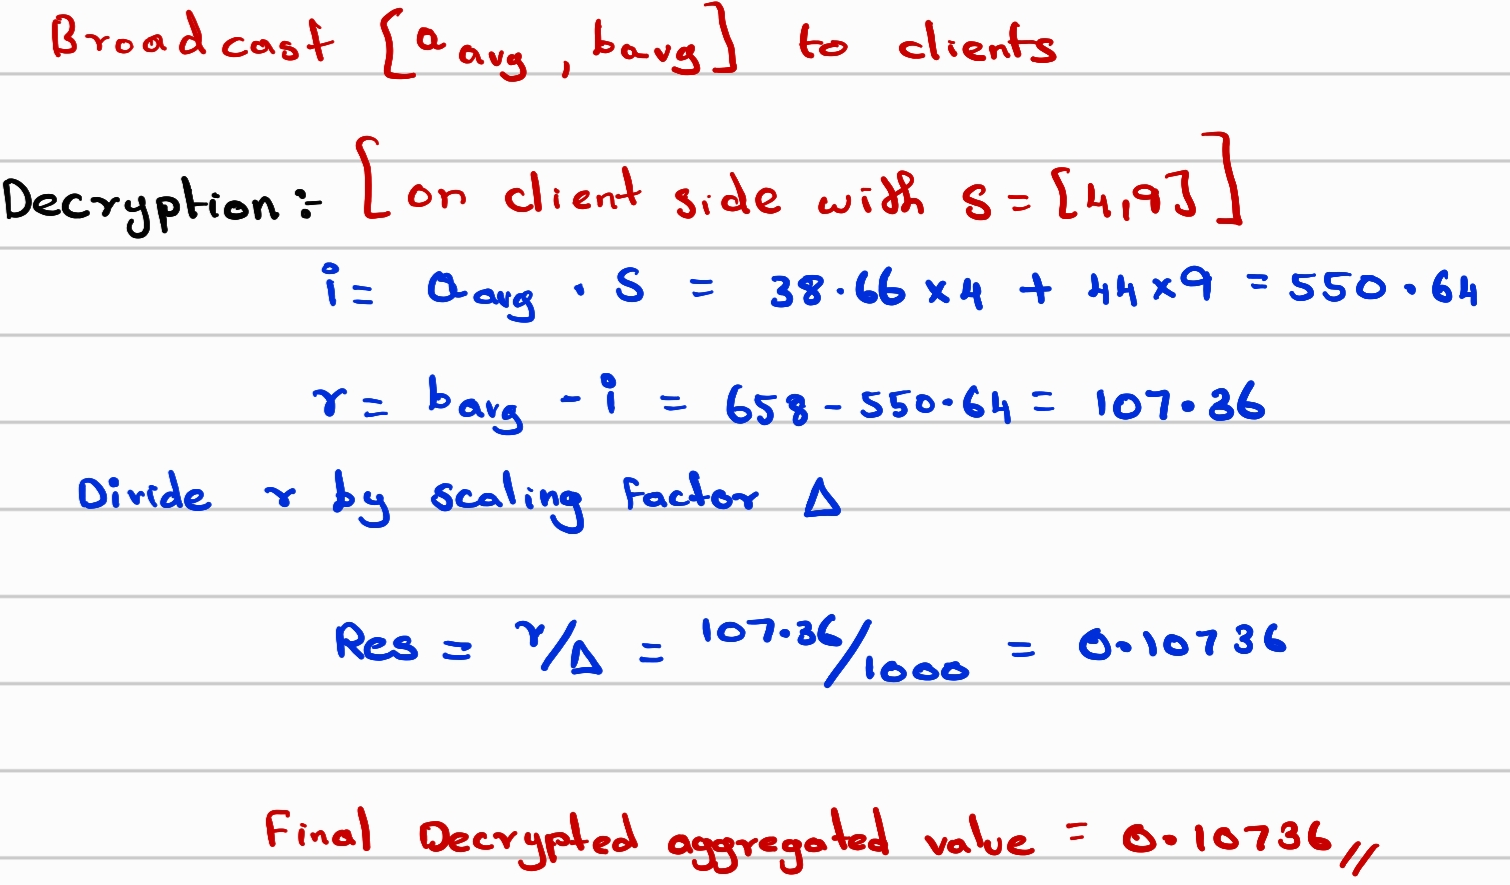 Broadcast [a avg , bavg] to clients
Decryption :- [on client side with s = [4,9]]
i = a avg . s = 38.66 x 4 + 44 x 9 = 550.64
r = bavg - i = 658 - 550.64 = 107.36
Divide r by scaling factor Δ
Res = r/Δ = 107.36/1000 = 0.10736
Final Decrypted aggregated value = 0.10736 //